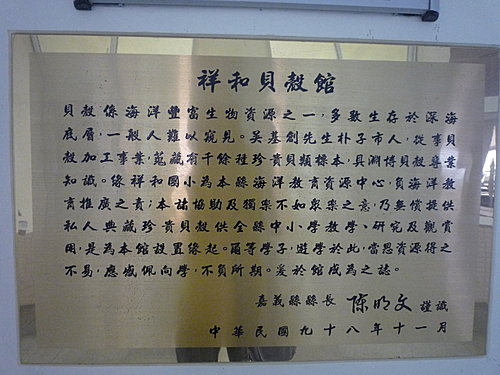 祥和貝殼館
貝殼係海洋豐富生物資源之一，多數生存於深海
底層，一般人難以窺見。吳基創先生朴子市人，從事貝
殼加工事業，蒐藏有千餘種珍貴貝類標本，具淵博貝殼專業
知識。緣祥和國小為本縣海洋教育資源中心，負海洋教
育推廣之責；本諸協助及獨樂不如眾樂之意，乃無償提供
私人典藏珍貴貝殼供全縣中小學教學、研究及觀賞
用，是為本館設置緣起。爾等學子，遊學於此，當思資源得之
不易，應感佩向學，不負所期。爰於館成為之誌。
嘉義縣縣長 陳明文 謹識
中華民國九十八年十一月